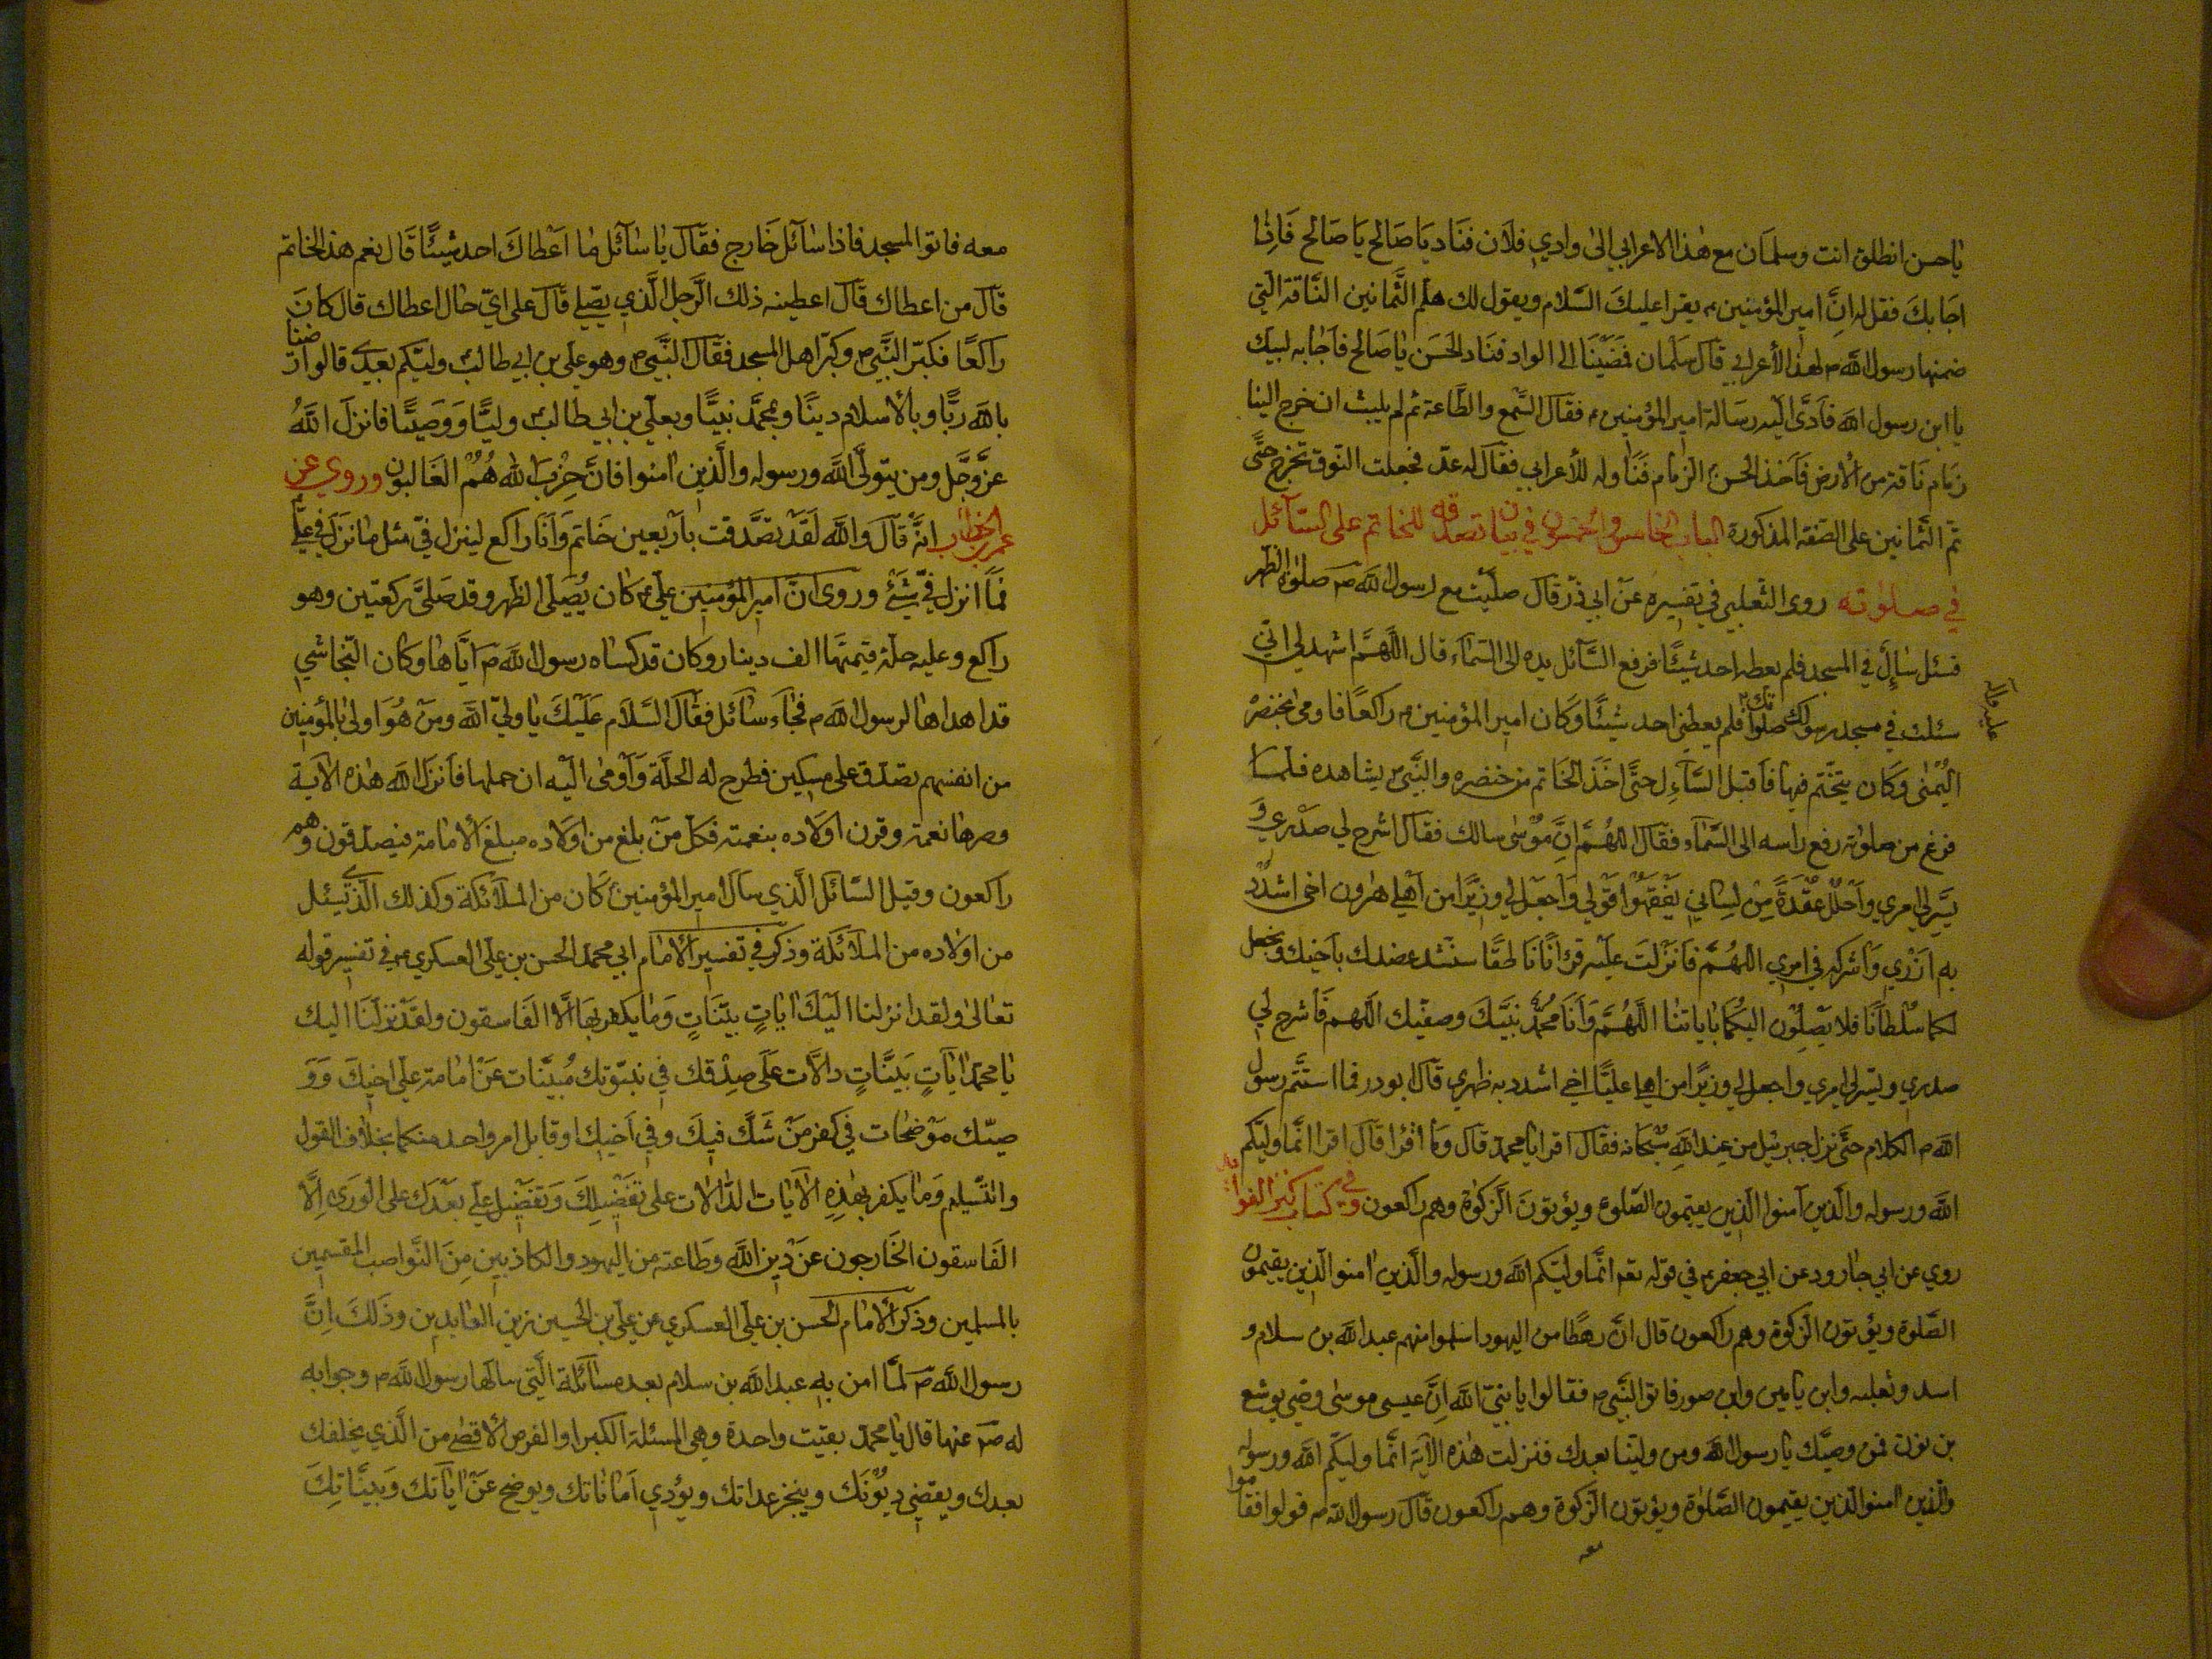 ياحسن انطلق انت وسلمان مع هذا الاعرابي الى وادي فلان فناد يا صالح يا صالح فاذا
اجابك فقل له ان امير المؤمنين يقرا عليك السلام ويقول لك هلم الثمانين الناقة التي
ضمنها رسول الله ص لهذا الأعرابي قال سلمان فمضينا الى الواد فناد الحسن يا صالح فاجابه لبيك
يا ابن رسول الله فادى اليه رسالة امير المؤمنين فقال السمع والطاعة ثم لم يلبث ان خرج الينا
زمام ناقة من الارض فاخذ الحسن الزمام فناوله للأعرابي فقال له عد فجعلت النوق تخرج حتى
تم الثمانين على الصفة المذكورة الباب الخامس والخمسون في بيان تصدقه للخاتم على السائل
في صلوته روى الثعلبي في تفسيره عن ابي ذر قال صليت مع رسول الله ص صلوة الظهر
فسئل سائل في المسجد فلم يعطه احد شيئا فرفع السائل يده الى السماء قال اللهم اشهد لي اني
سئلت في مسجد رسولك فلم يعطني احد شيئا وكان امير المؤمنين راكعا فاومى بخنصره
اليمنى وكان يتختم فيها فاقبل السائل حتى اخذ الخاتم من خنصره والنبي يشاهده فلما
فرغ من صلوته رفع راسه الى السماء فقال اللهم ان موسى سالك فقال اشرح لي صدري و
يسر لي امري واحلل عقدة من لساني يفقهوا قولي واجعل لي وزيرا من اهلي هرون اخى اشدد
به ازري واشركه في امري اللهم فانزلت عليه قرانا ناطقا سنشد عضدك باخيك ونجعل
لكما سلطانا فلا يصلون اليكما باياتنا اللهم وانا محمد نبيك وصفيك اللهم فاشرح لي
صدري ويسر لي امري واجعل لي وزيرا من اهلي عليا اخي اشدد به ظهري قال ابوذر فما استتم رسول
الله ص الكلام حتى نزل جبرئيل من عند الله سبحانه فقال اقرا يا محمد قال وما اقرا قال اقرا انما وليكم
الله ورسوله والذين آمنوا الذين يقيمون الصلوة ويؤتون الزكوة وهم راكعون وفي كتاب كنز الفوا
روي عن ابي جارود عن ابي جعفر في قوله تعم انما وليكم الله ورسوله والذين امنوا الذين يقيمون
الصلوة ويؤتون الزكوة وهم راكعون قال ان رهطا من اليهود اسلموا منهم عبد الله بن سلام و
اسد وثعلبه وابن يامين وابن صور فاتوا النبي ص فقالوا يا نبي الله ان موسى وصي يوشع
بن نون فمن وصيك يا رسول الله ومن ولينا بعدك فنزلت هذه الآية انما وليكم الله ورسوله
والذين امنوا الذين يقيمون الصلوة ويؤتون الزكوة وهم راكعون قال رسول الله ص قولوا فقاموا
معه
معه فاتوا المسجد فاذا سائل خارج فقال يا سائل ما اعطاك احد شيئا قال نعم هذ الخاتم
قال من اعطاك قال اعطينه ذلك الرجل الذي يصلي قال على اي حال اعطاك قال كان
راكعا فكبر النبي ص وكبر اهل المسجد فقال النبي ص وهو علي بن ابي طالب وليكم بعدي قالوا رضينا
بالله ربا وبالأسلام دينا وبمحمد نبيا وبعلي بن ابي طالب وليا ووصيا فانزل الله
عز وجل ومن يتولى الله ورسوله والذين امنوا فان حزب الله هم الغالبون وروي عن
عمر بن الخطاب انه قال والله لقد تصدقت باربعين خاتم وانا راكع لينزل في مثل ما نزل في علي
فما انزل في شئ وروى ان امير المؤمنين علي ع كان يصلى الظهر وقد صلى ركعتين وهو
راكع وعليه حلة قيمتها الف دينار وكان قد كساه رسول الله ص اياها وكان النجاشي
قد اهداها لرسول الله ص فجاء سائل فقال السلام عليك يا ولي الله ومن هو اولى بالمؤمنين
من انفسهم تصدق على مسكين فطرح له الحلة واومى اليه ان حملها فانزل الله هذه الاية
وصرها نعمة وقرن اولاده بنعمته فكل من بلغ من اولاده مبلغ الأمامة فيصدقون وهم
راكعون وقيل السائل الذي سال امير المؤمنين كان من الملائكة وكذلك الذي يسئل
من اولاده من الملائكة وذكر في تفسير الأمام ابي محمد الحسن بن علي العسكري ع في تفسير قوله
تعالى ولقد انزلنا اليك ايات بينات وما يكفر بها الا الفاسقون ولقد نزلنا اليك
يا محمد ايات بينات دالات على صدقك في نبوتك مبينات عن امامة علي اخيك وو
صيك موضحات في كفر من شك فيك وفي اخيك او قابل امر واحد منكما بخلاف القول
والتسليم وما يكفر بهذه الآيات الدالات على تفضيلك وتفضيل علي بعدك على الورى الا
الفاسقون الخارجون عن دين الله وطاعته من اليهود والكاذبين من النواصب المقسمين
بالمسلمين وذكر الأمام الحسن بن علي العسكري عن علي بن الحسين زين العابدين وذلك ان
رسول الله ص لما امن به عبد الله بن سلام بعد مسائلة التي سالها رسول الله ص وجوابه
له ص عنها قال يا محمد بقيت واحدة وهي المسئلة الكبرا والغرض الأقصى من الذي يخلفك
بعدك ويقضي ديونك وينجز عداتك ويؤدي اماناتك ويوضح عن اياتك وبيناتك